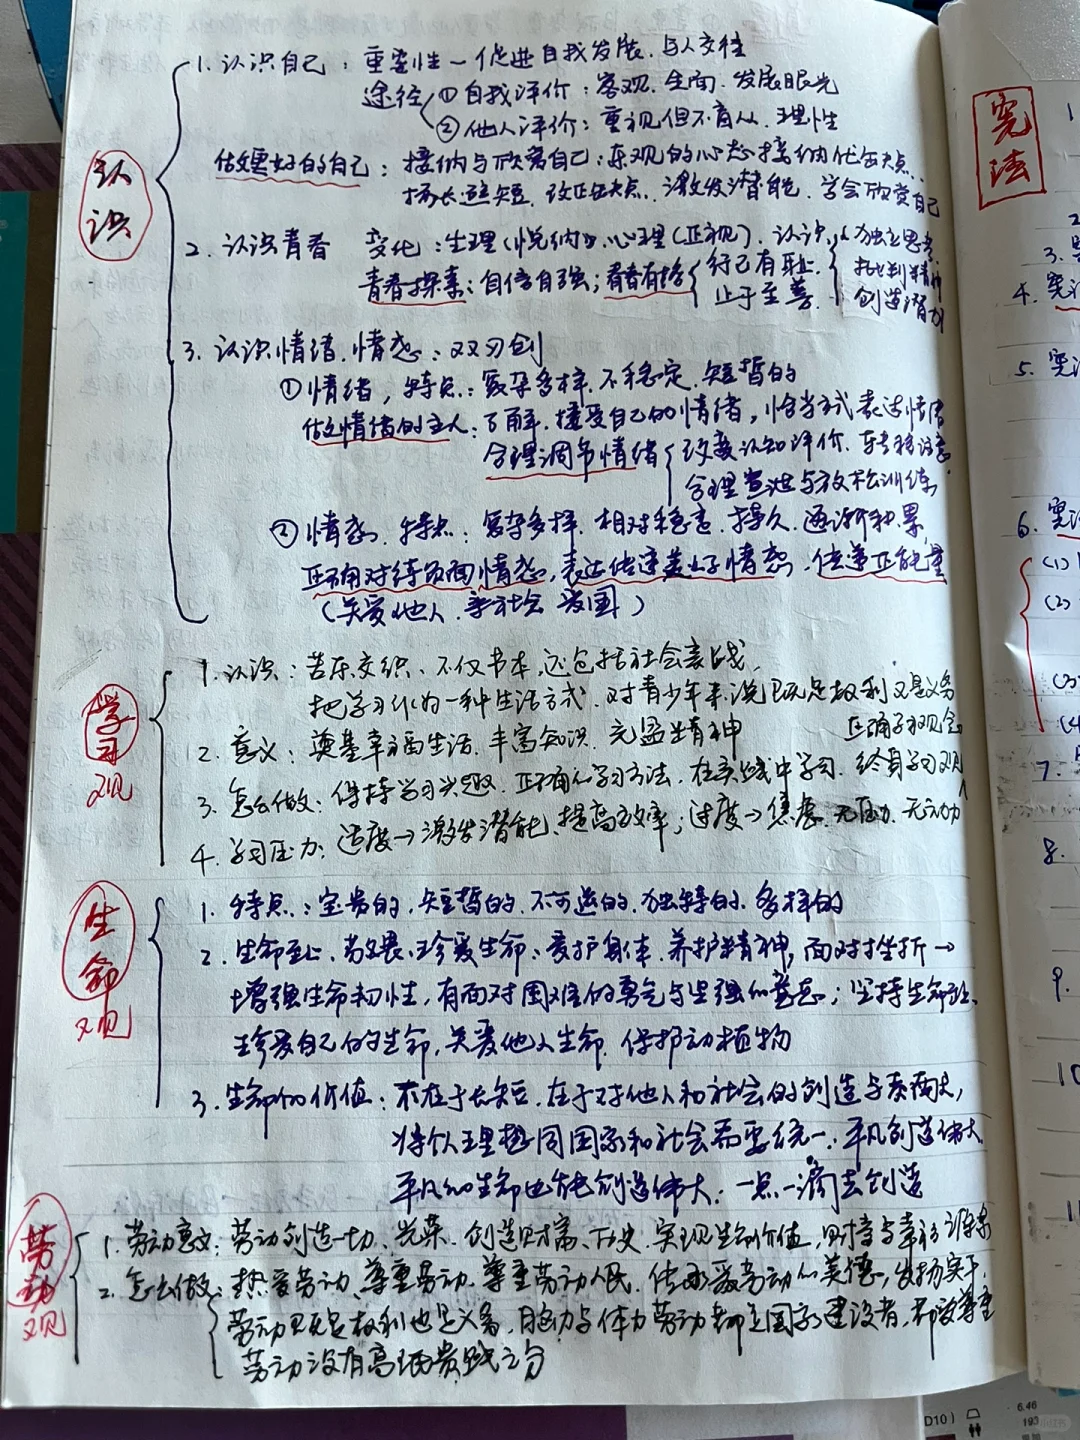 认识
1. 认识自己：重要性—促进自我发展、与人交往
途径 ①自我评价：客观、全面、发展眼光
②他人评价：重视但不盲从、理性
做更好的自己：接纳与欣赏自己：乐观的心态接纳优缺点、
扬长避短、改正缺点、激发潜能、学会欣赏自己
2. 认识青春 变化：生理(悦纳)、心理(正视)、认识 独立思考
批判精神
创造潜力
青春探索：自信自强；青春有格 行己有耻
止于至善
3. 认识情绪、情感：双刃剑
①情绪，特点：复杂多样、不稳定、短暂的
做情绪的主人：了解、接受自己的情绪，恰当方式表达情绪
合理调节情绪 改变认知评价、转移注意
合理宣泄与放松训练
②情感，特点：复杂多样、相对稳定、持久、逐渐积累
正确对待负面情感，表达传递美好情感、传递正能量
(关爱他人、亲社会、爱国)
学习观
1. 认识：苦乐交织、不仅书本，还包括社会实践，
把学习化为一种生活方式，对青少年来说既是权利又是义务
2. 意义：奠基幸福生活、丰富知识、充盈精神
正确学习观念
3. 怎么做：保持学习兴趣、正确的学习方法，在实践中学习、终身学习观
4. 学习压力：适度→激发潜能、提高效率；过度→焦虑、无压力、无动力
生命观
1. 特点：宝贵的、短暂的、不可逆的、独特的、多样的
2. 生命至上、敬畏、珍爱生命、爱护身体、养护精神，面对挫折→
增强生命韧性，有面对困难的勇气与坚强的意志；坚持生命至上、
珍爱自己的生命，关爱他人生命、保护动植物
3. 生命的价值：不在于长短，在于对他人和社会的创造与奉献，
将个人理想同国家和社会需要统一、平凡创造伟大
平凡的生命也能创造伟大、一点一滴去创造
劳动观
1. 劳动意义：劳动创造一切、光荣、创造财富、历史、实现生命价值，
2. 怎么做：热爱劳动、尊重劳动、尊重劳动人民、传承爱劳动的美德，发扬实干
劳动既是权利也是义务，脑力与体力劳动都是国家建设者，都被尊重
劳动没有高低贵贱之分
宪法
1
3.
4. 宪
5. 宪
6. 宪
(1)
(2)
(3)
(4)
7.
8.
9.
10
11
D10)
6.46
193